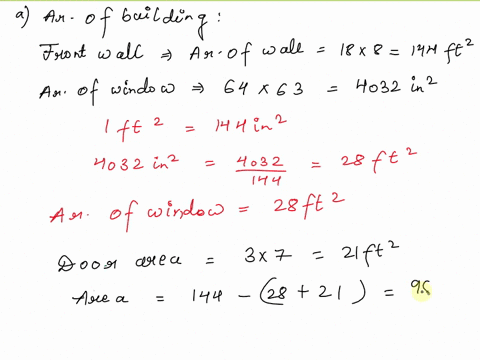 a) Ar. of building:
Front wall ⇒ Ar. of wall = 18 x 8 = 144 ft²
Ar. of window ⇒ 64 x 63 = 4032 in²
1 ft² = 144 in²
4032 in² = 4032/144 = 28 ft²
Ar. of window = 28 ft²
Door area = 3 x 7 = 21 ft²
Area = 144 - (28 + 21) =